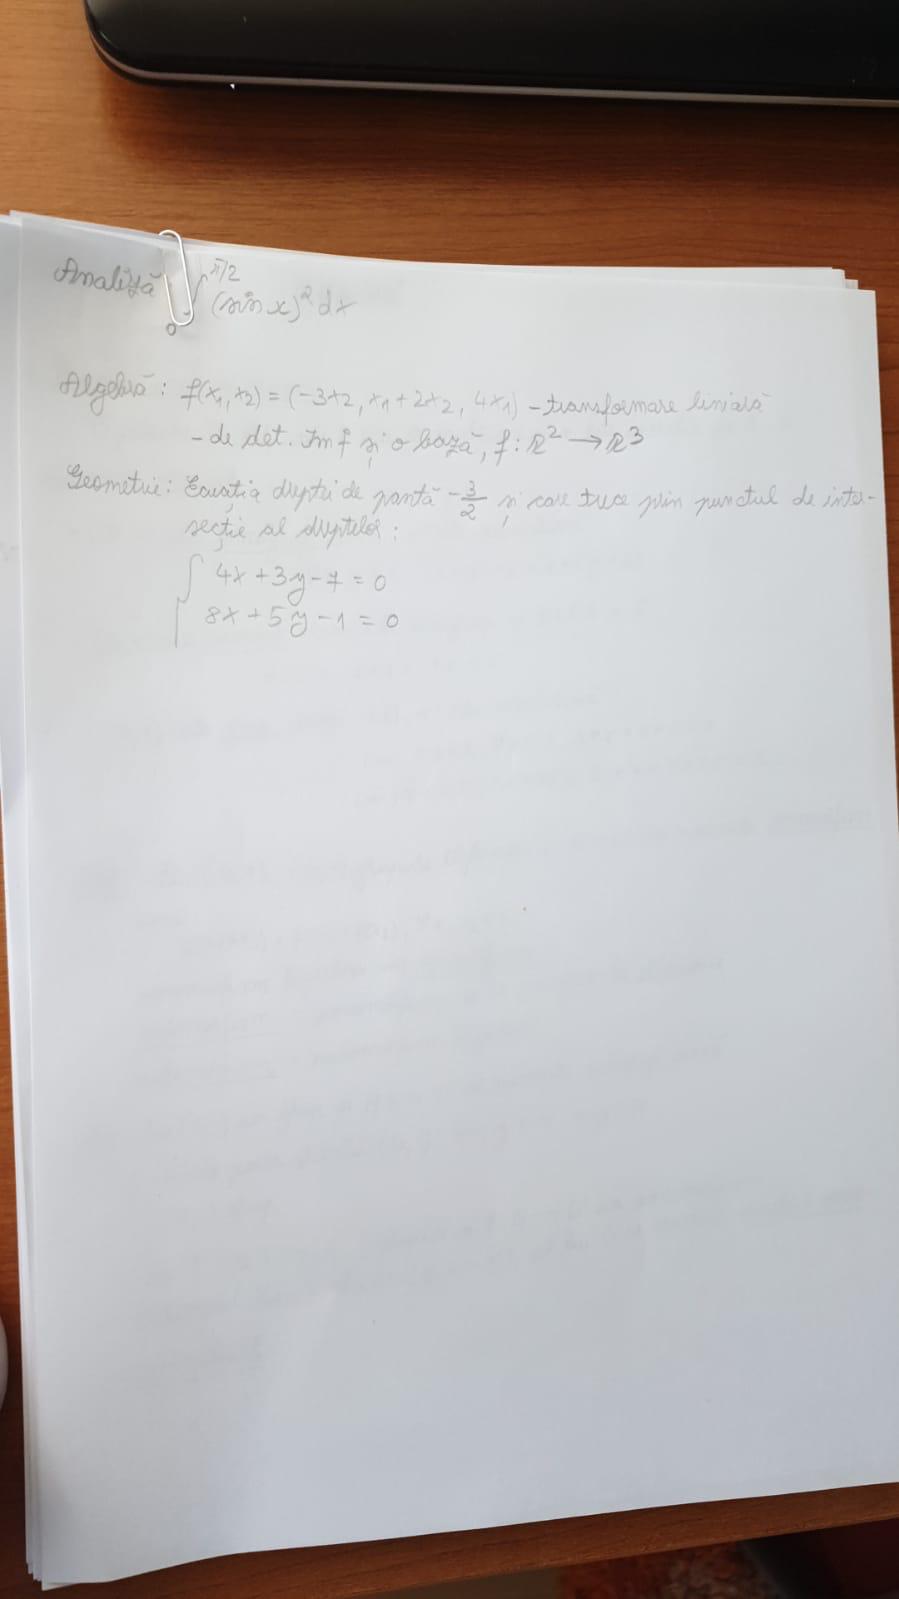 Analiză ∫₀^π/2 (sin x)² dx
Algebră: f(x₁, x₂) = (-3x₂, x₁ + 2x₂, 4x₁) - transformare liniară
- de det. Im f și o bază, f: R² → R³
Geometrie: Ecuația dreptei de pantă -3/2 și care trece prin punctul de inter-
secție al dreptelor:
{ 4x + 3y - 7 = 0
8x + 5y - 1 = 0